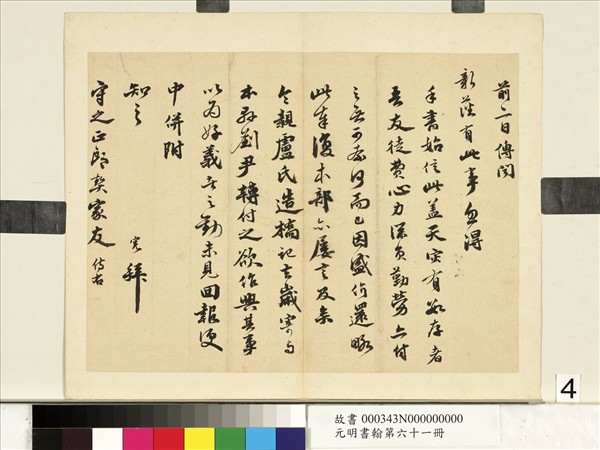 前一日傳聞
新蔭有此事忽得
手書始信此蓋天定有數存者
吾友徒費心力深負勤勞亦付
之無可奈何而已因盛价還略
此奉復本部亦屢言及矣
令親盧氏造橋記去歲寄與
本縣劉尹轉付之欲作興其事
以為好義者之勸未見回報便
中併附
知之
寬拜
守之正郎契家友
侍右
4
故書 000343N000000000
元明書翰第六十一冊